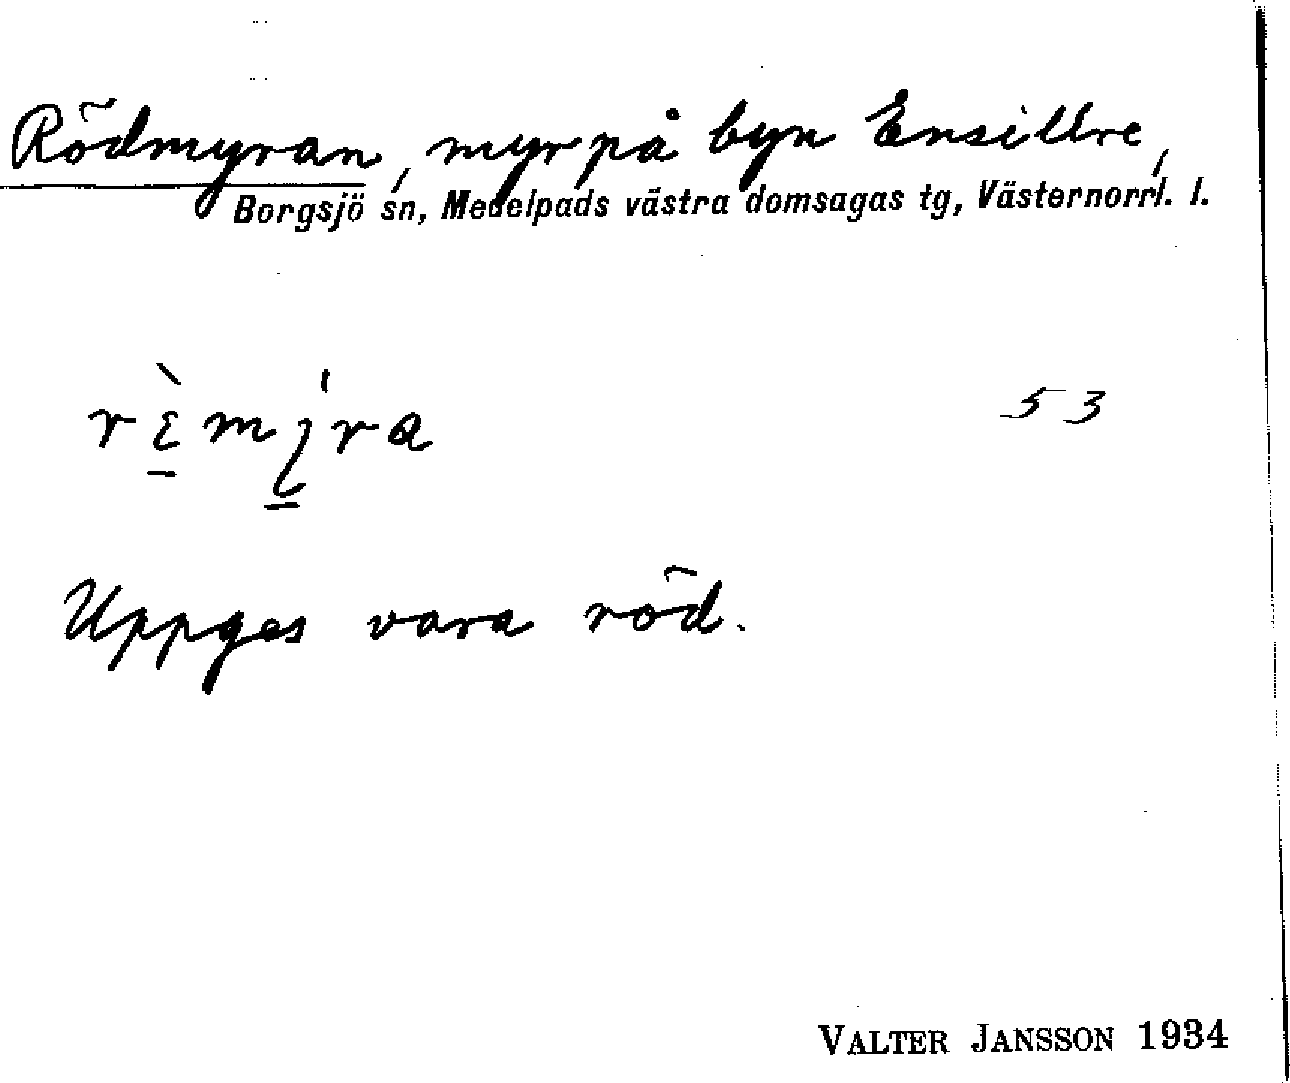 Rödmyran, myr på byn Ensillre,
Borgsjö sn, Medelpads västra domsagas tg, Västernorrl. l.
53
Uppges vara röd.
VALTER JANSSON 1934